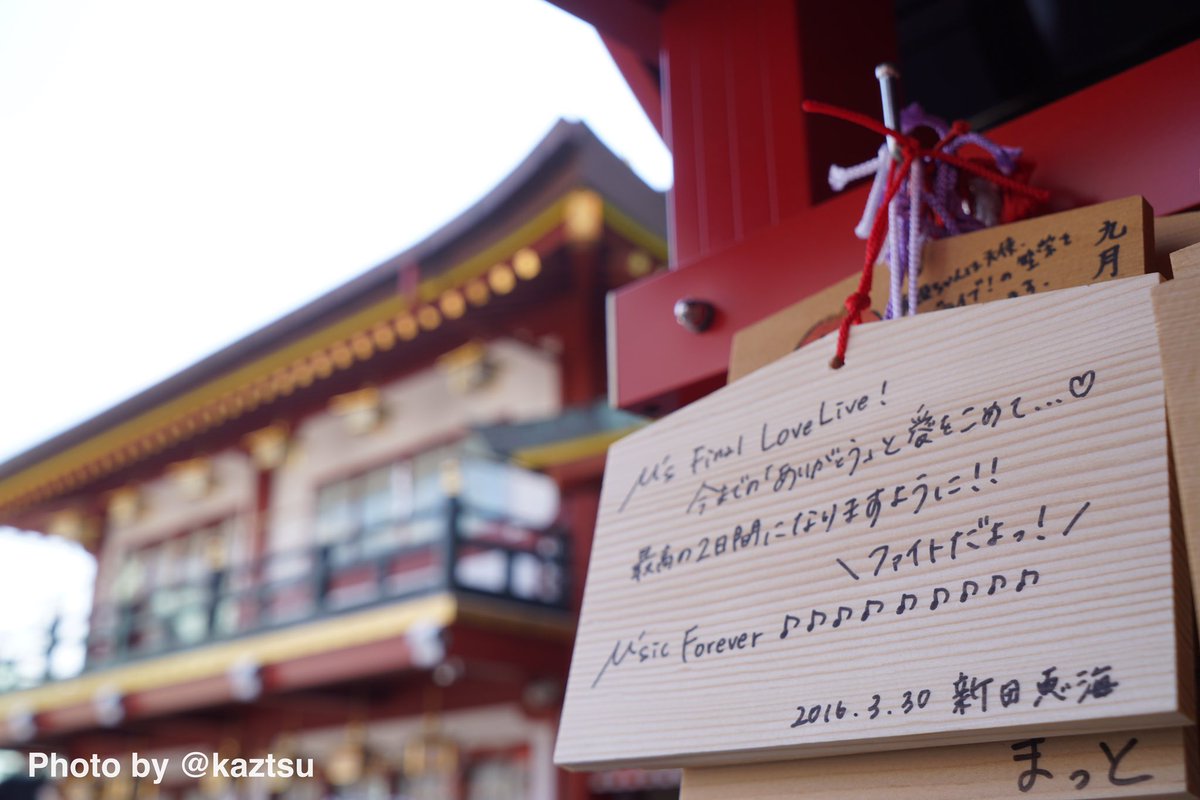 μ's Final LoveLive!
今までの「ありがとう」と愛をこめて...♡
最高の2日間になりますように!!
\ファイトだよっ!/
μ'sic Forever ♪♪♪♪♪♪♪♪♪
2016.3.30 新田恵海
九月
ちゃんは天使.
まっと
Photo by @kaztsu